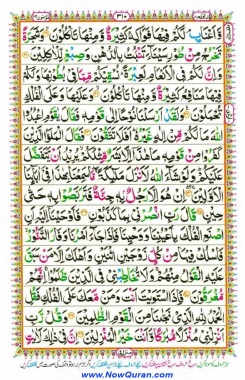 وَّاَعْنَابٍ ۘ لَكُمْ فِيْهَا فَوَاكِهُ كَثِيْرَةٌ وَّمِنْهَا تَاْكُلُوْنَ ۙ وَشَجَرَةً
تَخْرُجُ مِنْ طُوْرِ سَيْنَآءَ تَنْۢبُتُ بِالدُّهْنِ وَصِبْغٍ لِّلْاٰكِلِيْنَ
وَاِنَّ لَكُمْ فِى الْاَنْعَامِ لَعِبْرَةً ؕ نُسْقِيْكُمْ مِّمَّا فِىْ بُطُوْنِهَا وَلَكُمْ
فِيْهَا مَنَافِعُ كَثِيْرَةٌ وَّمِنْهَا تَاْكُلُوْنَ ۙ وَعَلَيْهَا وَعَلَى الْفُلْكِ
تُحْمَلُوْنَ وَلَقَدْ اَرْسَلْنَا نُوْحًا اِلٰى قَوْمِهٖ فَقَالَ يٰقَوْمِ اعْبُدُوا
اللّٰهَ مَا لَكُمْ مِّنْ اِلٰهٍ غَيْرُهٗ ؕ اَفَلَا تَتَّقُوْنَ فَقَالَ الْمَلَؤُا الَّذِيْنَ
كَفَرُوْا مِنْ قَوْمِهٖ مَا هٰذَآ اِلَّا بَشَرٌ مِّثْلُكُمْ ۙ يُرِيْدُ اَنْ يَّتَفَضَّلَ
عَلَيْكُمْ ؕ وَلَوْ شَآءَ اللّٰهُ لَاَنْزَلَ مَلٰٓئِكَةً ۖ مَّا سَمِعْنَا بِهٰذَا فِىْٓ اٰبَآئِنَا
الْاَوَّلِيْنَ اِنْ هُوَ اِلَّا رَجُلٌۢ بِهٖ جِنَّةٌ فَتَرَبَّصُوْا بِهٖ حَتّٰى
حِيْنٍ قَالَ رَبِّ انْصُرْنِىْ بِمَا كَذَّبُوْنِ فَاَوْحَيْنَآ اِلَيْهِ اَنِ
اصْنَعِ الْفُلْكَ بِاَعْيُنِنَا وَوَحْيِنَا فَاِذَا جَآءَ اَمْرُنَا وَفَارَ التَّنُّوْرُ ۙ
فَاسْلُكْ فِيْهَا مِنْ كُلٍّ زَوْجَيْنِ اثْنَيْنِ وَاَهْلَكَ اِلَّا مَنْ سَبَقَ
عَلَيْهِ الْقَوْلُ مِنْهُمْ ۚ وَلَا تُخَاطِبْنِىْ فِى الَّذِيْنَ ظَلَمُوْا ۚ اِنَّهُمْ
مُّغْرَقُوْنَ فَاِذَا اسْتَوَيْتَ اَنْتَ وَمَنْ مَّعَكَ عَلَى الْفُلْكِ فَقُلِ
الْحَمْدُ لِلّٰهِ الَّذِىْ نَجّٰنَا مِنَ الْقَوْمِ الظّٰلِمِيْنَ وَقُلْ رَّبِّ
اَنْزِلْنِىْ مُنْزَلًا مُّبٰرَكًا وَّاَنْتَ خَيْرُ الْمُنْزِلِيْنَ اِنَّ فِىْ ذٰلِكَ لَاٰيٰتٍ
www.NowQuran.com